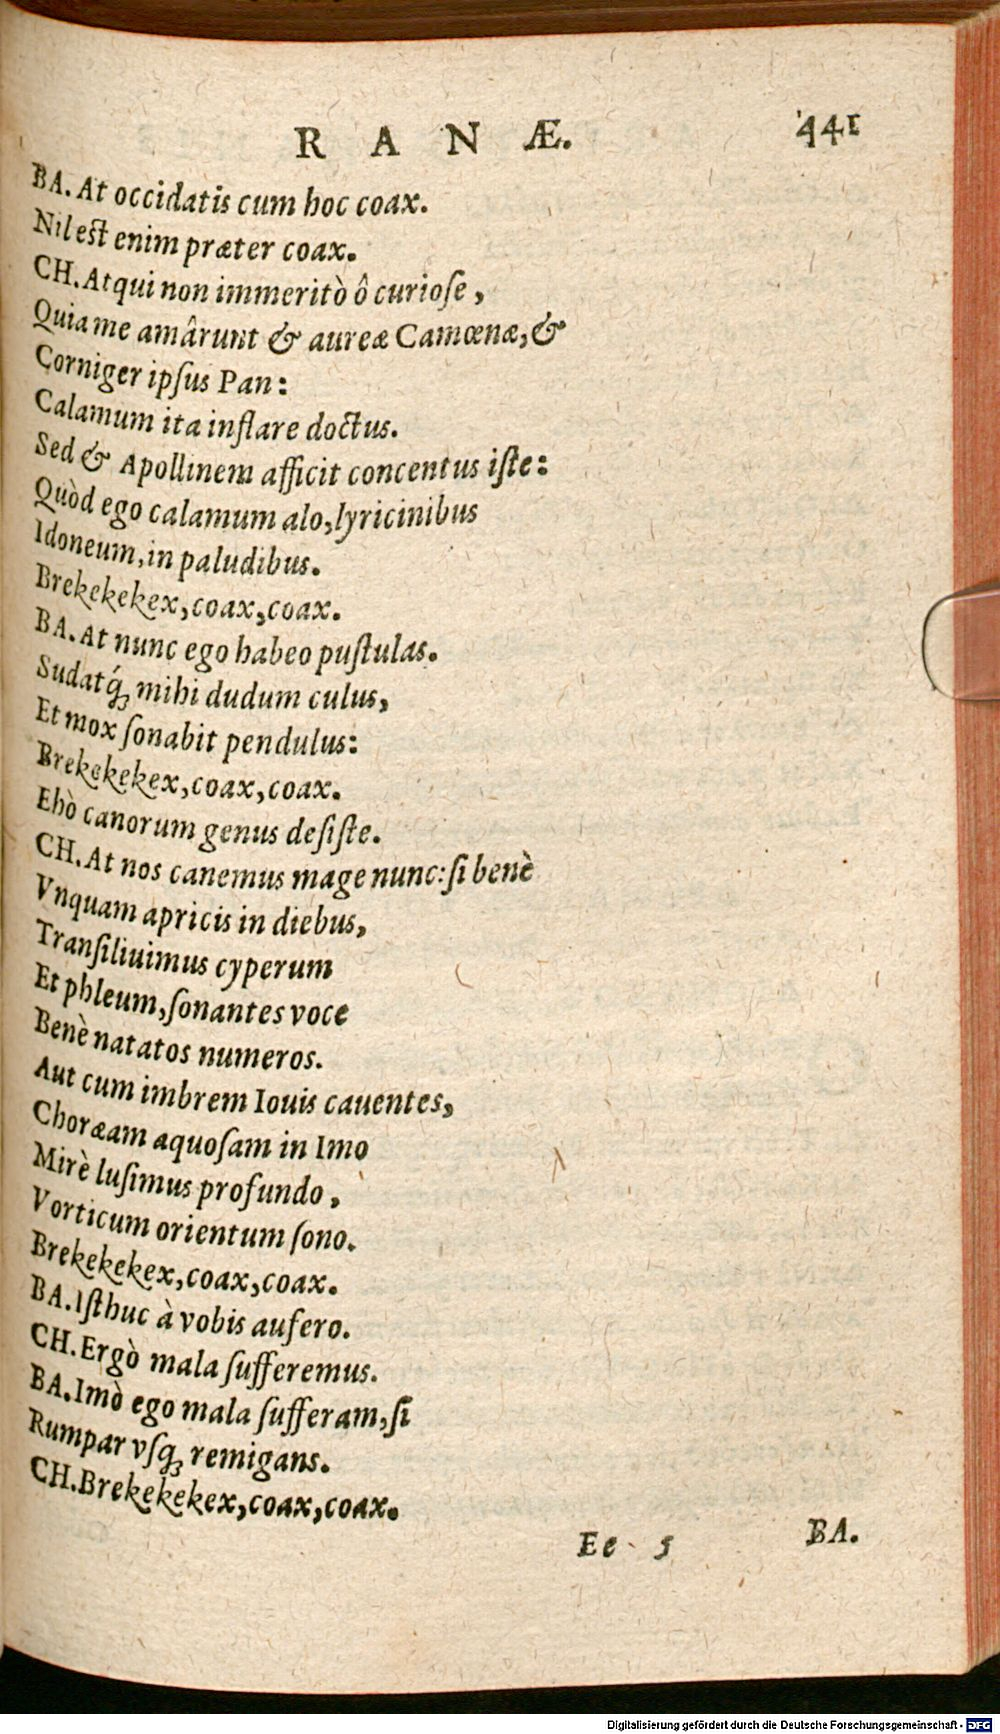 RANÆ. 441
BA. At occidatis cum hoc coax.
Nil est enim præter coax.
CH. Atqui non immeritò ô curiose,
Quia me amârunt & aureæ Camœnæ, &
Corniger ipsus Pan:
Calamum ita inflare doctus.
Sed & Apollinem afficit concentus iste:
Quòd ego calamum alo, lyricinibus
Idoneum, in paludibus.
Brekekekex, coax, coax.
BA. At nunc ego habeo pustulas.
Sudatq́; mihi dudum culus,
Et mox sonabit pendulus:
Brekekekex, coax, coax.
Ehò canorum genus desiste.
CH. At nos canemus mage nunc: si benè
Vnquam apricis in diebus,
Transiliuimus cyperum
Et phleum, sonantes voce
Benè natatos numeros.
Aut cum imbrem Iouis cauentes,
Choræam aquosam in Imo
Mirè lusimus profundo,
Vorticum orientum sono.
Brekekekex, coax, coax.
BA. Isthuc à vobis aufero.
CH. Ergò mala sufferemus.
BA. Imò ego mala sufferam, si
Rumpar vsq; remigans.
CH. Brekekekex, coax, coax.
Ee 5 BA.
Digitalisierung gefördert durch die Deutsche Forschungsgemeinschaft - DFG